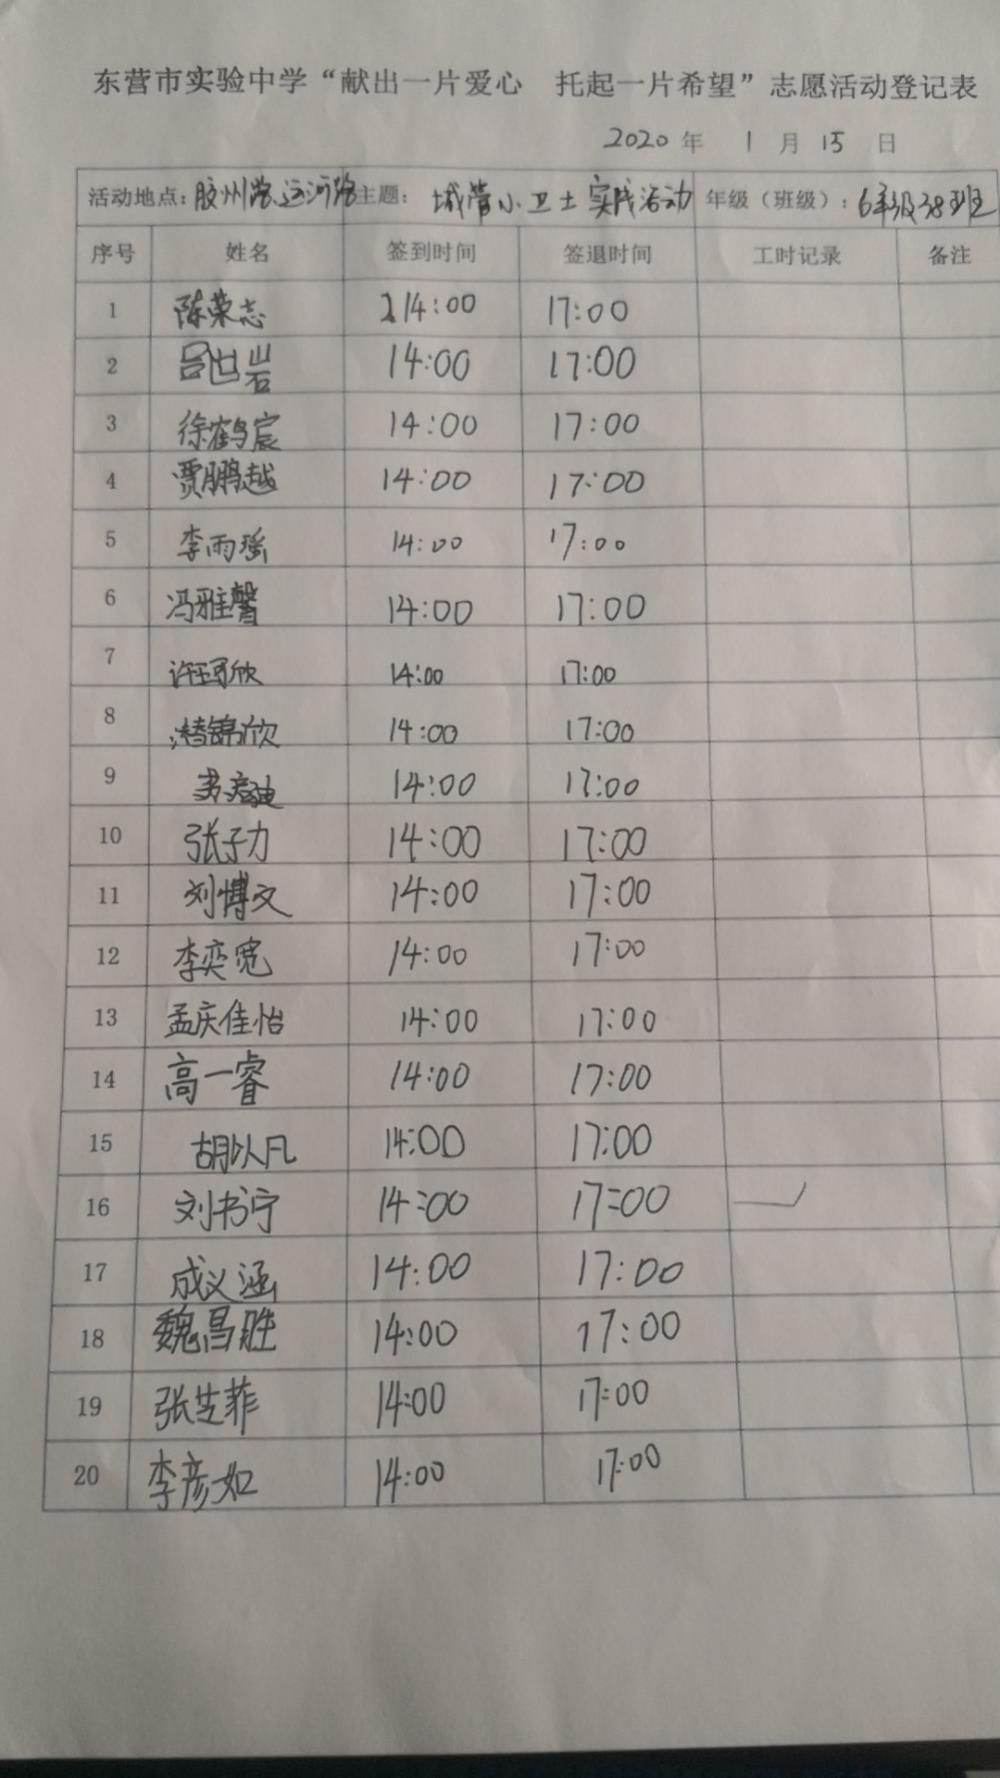 东营市实验中学“献出一片爱心 托起一片希望”志愿活动登记表
2020 年 1 月 15 日
活动地点：胶州路、运河路 主题： 城管小卫士实践活动 年级（班级）：6年级38班
序号 姓名 签到时间 签退时间 工时记录 备注
1 陈荣志 14:00 17:00
2 吕世岩 14:00 17:00
3 徐鹤宸 14:00 17:00
4 贾鹏越 14:00 17:00
5 李雨瑶 14:00 17:00
6 冯雅馨 14:00 17:00
7 许珂欣 14:00 17:00
8 锦欣 14:00 17:00
9 14:00 17:00
10 张子力 14:00 17:00
11 刘博文 14:00 17:00
12 李奕宽 14:00 17:00
13 孟庆佳怡 14:00 17:00
14 高一睿 14:00 17:00
15 胡以凡 14:00 17:00
16 刘书宁 14:00 17:00
17 成义涵 14:00 17:00
18 魏昌胜 14:00 17:00
19 张芝菲 14:00 17:00
20 李彦如 14:00 17:00